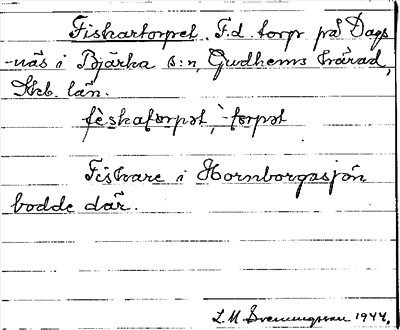 Fiskartorpet. F.d. torp på Dags-
-näs i Bjärka s:n, Gudhems härad,
Skb. län.
fèskatɔrpət, `-tɔrpət
Fiskare i Hornborgasjön
bodde där.
L. M. Svenungsson 1944.